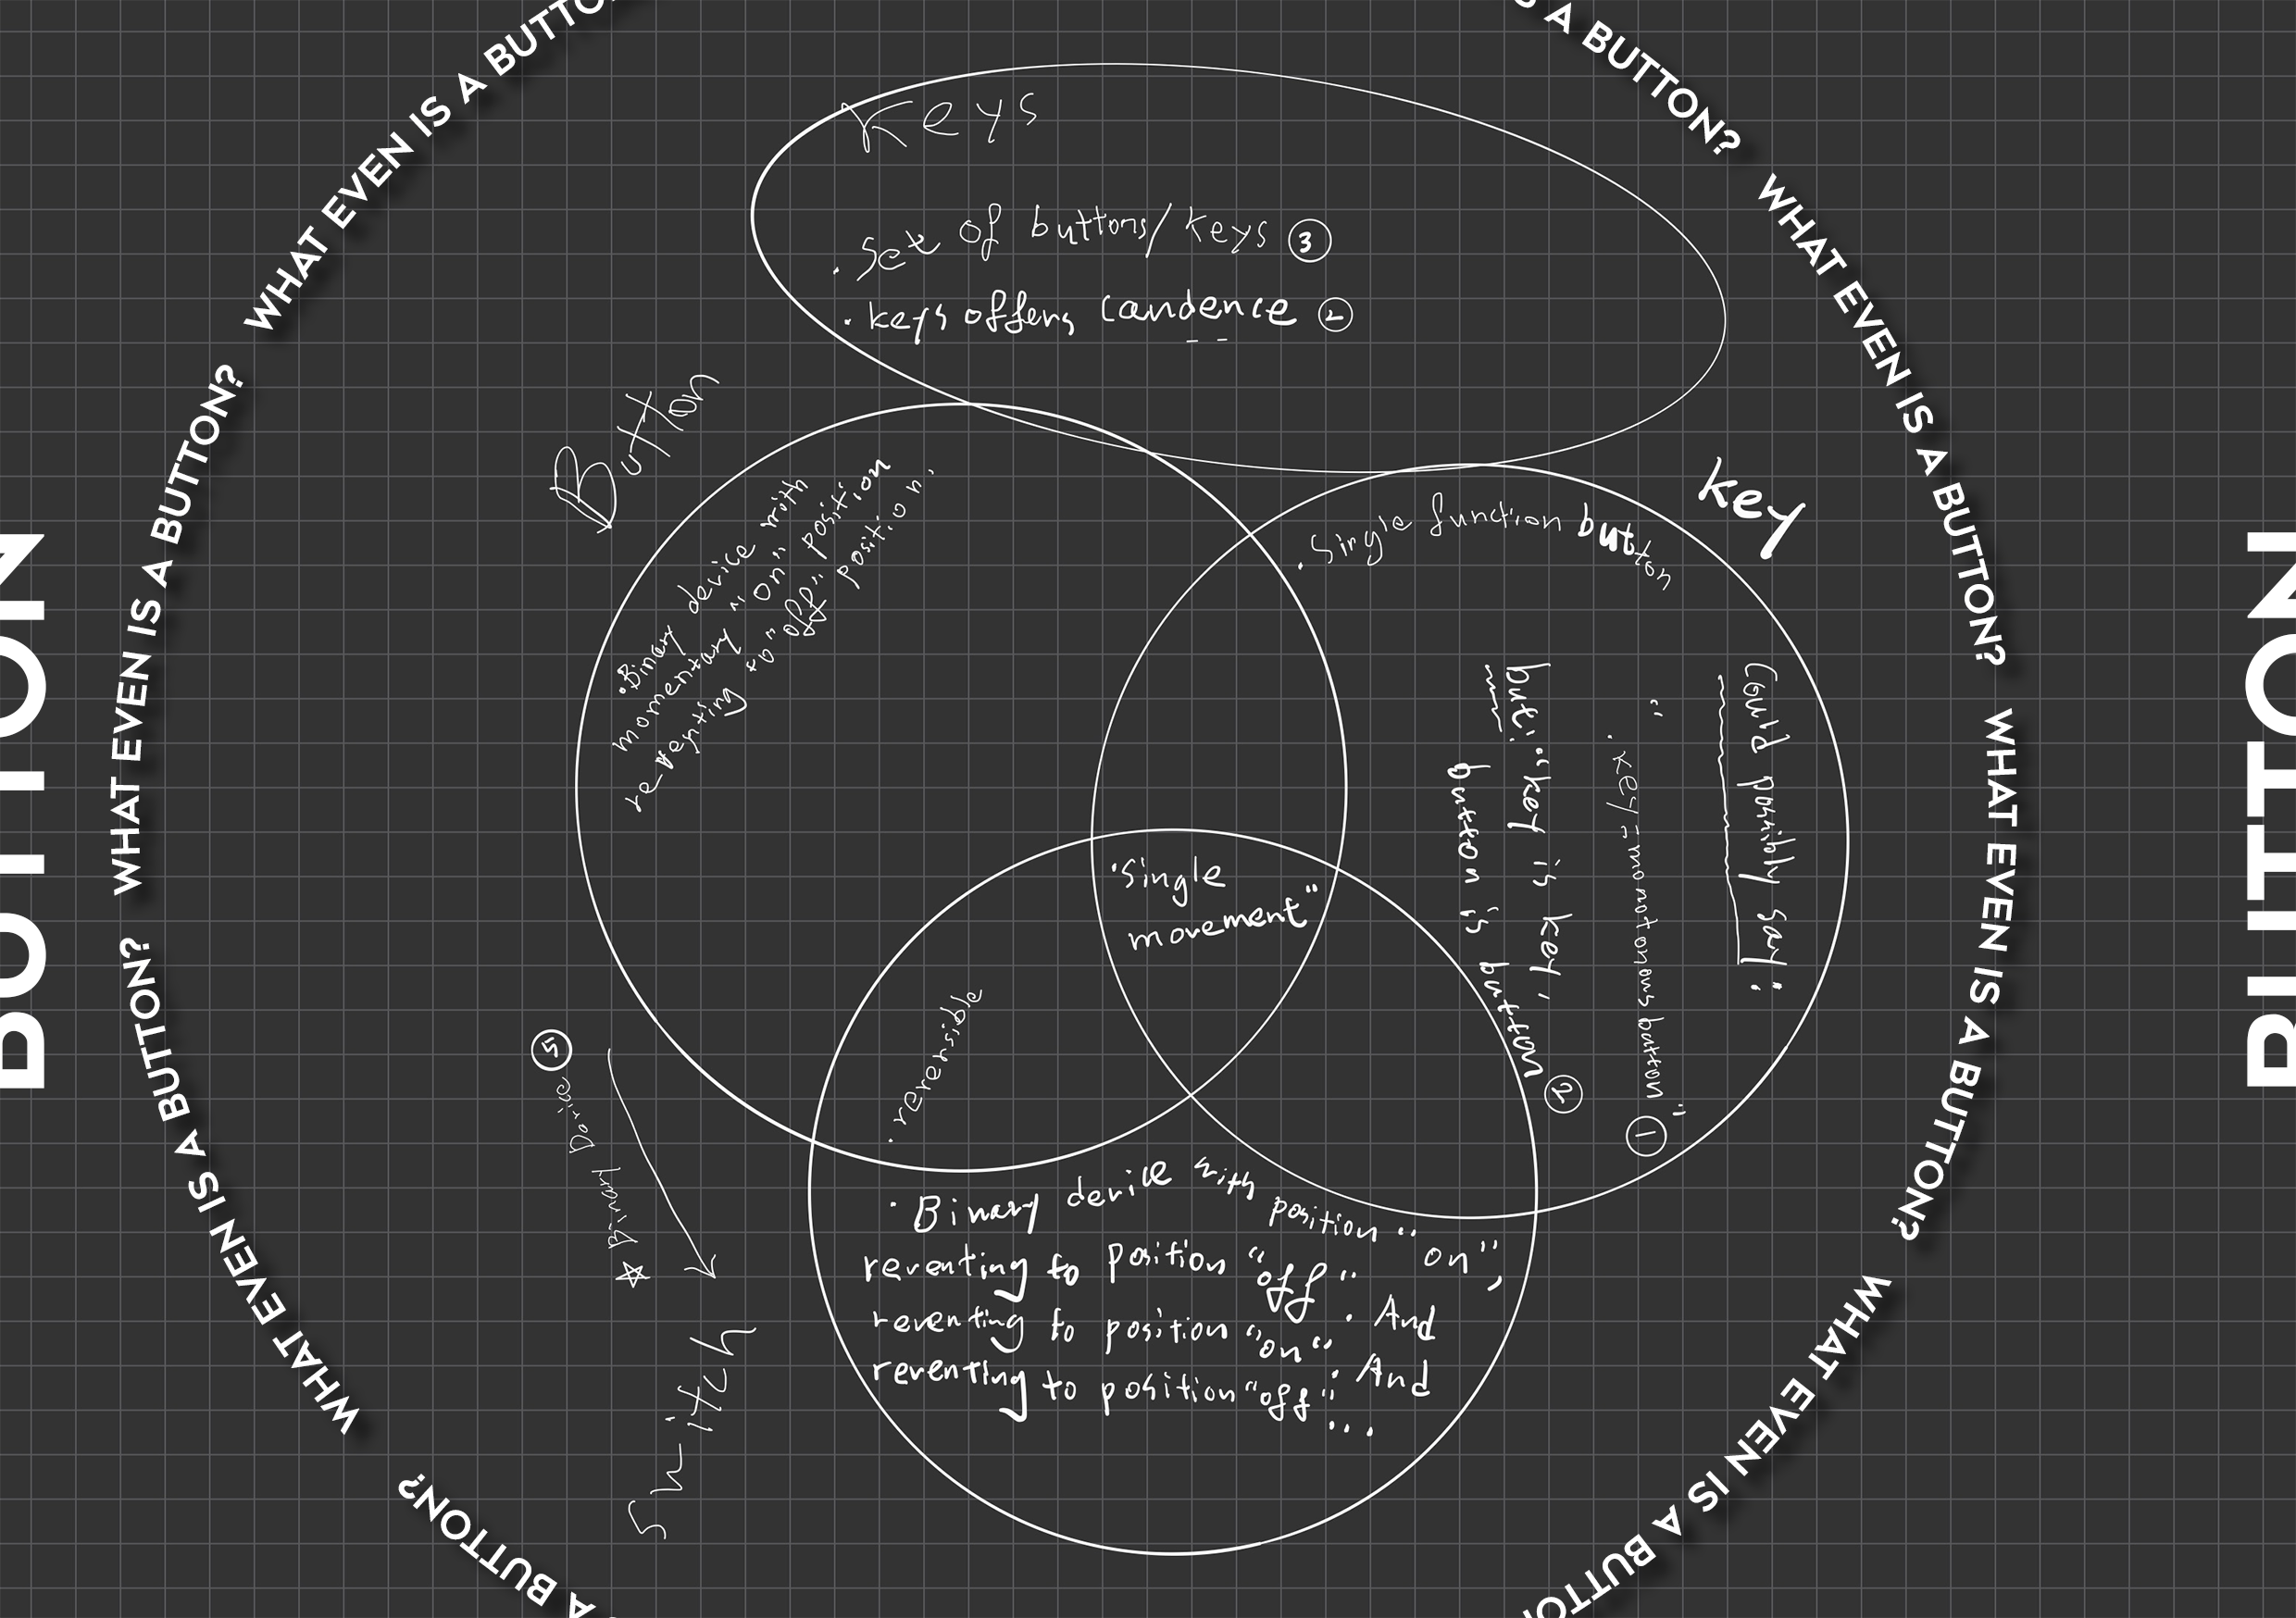 WHAT EVEN IS A BUTTO
S A BUTTON?
WHAT EVEN IS A BUTTON?
WHAT EVEN IS A BUTTON?
WHAT EVEN IS A BUTTON?
WHAT EVEN IS A BUTTON?
WHAT EVEN IS A BUTTON?
WHAT EVEN IS A BUTTO
A BUTTON?
BUTTON
BUTTON
Keys
· Set of buttons/keys ③
· keys offers candence ②
Button
· Binary device with
momentary "on" position
re-verting to "off" position.
key
· Single function button
could possibly say:
"
· key = monotonous button" ①
but: "key is key,
button is button ②
· Single
movement"
· reversible
⑤ Binary Device ☆
Switch
· Binary device with position "on",
reverting to position "off". And
reverting to position "on". And
reverting to position "off"...